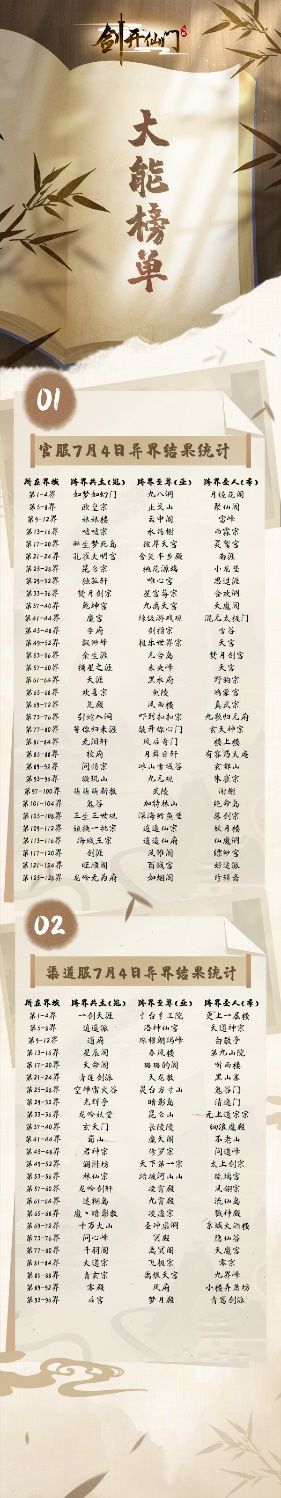 剑开仙门
大能榜单
01
官服7月4日异界结果统计
所在界域 跨界共主(冠) 跨界至尊(亚) 跨界圣人(季)
第1-4界 如梦如幻门 九八洞 月镜花阁
第5-8界 欧皇宗 止戈山 聚仙阁
第9-12界 妹妹楼 云中阁 雷峰
第13-16界 喵喵宗 水冶榭 雨霖宗
第17-20界 醉生梦死岛 彼岸天宫 灵鹫宫
第21-24界 孔雀大明宫 舍笑半步殿 南涯
第25-28界 昆仑宗 桃花源端 小龙堡
第29-32界 独孤轩 唯心宫 思过涯
第33-36界 焚月剑宗 星宫莓宗 合欢桐
第37-40界 乾坤宫 九霄天宫 天魔阁
第41-44界 魔宫 混元太极门
第45-48界 李府 剑指宗 雪谷
第49-52界 极乐世界宗 天宗
第53-56界 余生涯 无合岛 焚月剑宫
第57-60界 摘星之涯 未央峰 天宫
第61-64界 天涯 黑水府 野狗宗
第65-68界 欢喜宗 炎陵 鸿蒙宫
第69-72界 荒殿 风雨楼 真武宗
第73-76界 引蛇入洞 吓到扣扣宗 九教归元府
第77-80界 等你归来涯 敲开你心门 玄天神宗
第81-84界 无涧轩 风后奇门 楼上楼
第85-88界 牧府 月舞日轩 有容乃大庵
第89-92界 问情宗 冰山雪域谷 玄都山
第93-96界 璇玑山 九元观 朱雀宗
第97-100界 萌萌萌新教 武陵 谢榭
第101-104界 鬼谷 加特林山 绝命岛
第105-108界 三生三世观 深海鳕鱼堡 荡剑宗
第109-112界 姐换一批宗 逍遥仙宗 妖月楼
第113-116界 海贼王宗 逍遥仙府 仙魔洞
第117-120界 剑涯 风雅阁 缥缈宫
第121-124界 旺顺阁 百战宫 好运派
第125-128界 龙吟无为府 如烟阁 竹籽斋
02
渠道服7月4日异界结果统计
所在界域 跨界共主(冠) 跨界至尊(亚) 跨界圣人(季)
第1-4界 一剑天涯 更上一层楼
第5-8界 逍遥派 洛神仙宫 天道神宗
第9-12界 道府 珠穆朗玛峰 白骰亭
第13-16界 星辰阁 春风楼 第九山院
第17-20界 天命阁 璐璐的阁 听雨楼
第21-24界 青莲剑派 天龙教 黑山寨
第25-28界 空峰雷火谷 灵台方寸山 鬼谷门
第29-32界 光辉亭 暗影岛 清逸门
第33-36界 龙吟妖堂 昆仑山 元上道宗宗
第37-40界 玄天门 长陵陵 细浪魔殿
第41-44界 蜀山 魔天阁 不老山
第45-48界 君神宗 修罗宗 问道峰
第49-52界 澜浒坊 天下第一宗 太上剑宗
第53-56界 林仙宗 踏破河山山 琉璃宫
第57-60界 龙吟剑轩 凌霄殿 风翎宗
第61-64界 迷糊岛 九霄殿 流仙岛
第65-68界 魔丶暗影教 凌虚宗 戮神殿
第69-72界 十万大山 圣冲虚洞 京城大酒楼
第73-76界 问心峰 冥殿 隐仙谷
第77-80界 千羽阁 离冥阁 天魔宫
第81-84界 大道宗 飞极宗 零宗
第85-88界 青玄宗 离恨天宫 九界峰
第89-92界 零殿 风府 小楼弄箫坊
第93-96界 后宫 梦月殿 青鸾剑派